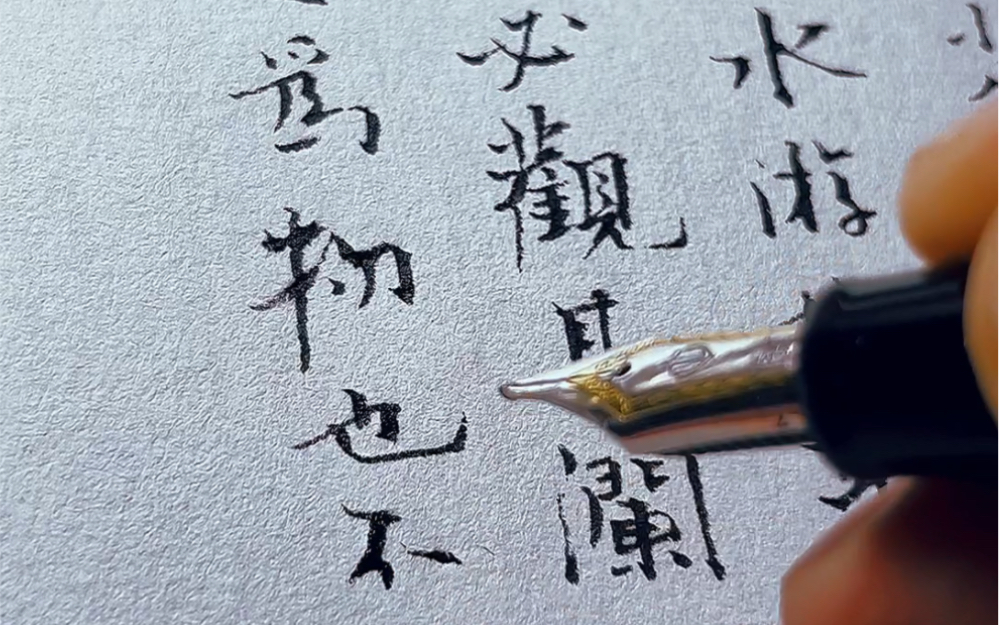 水游
必觀其瀾
爲物也不